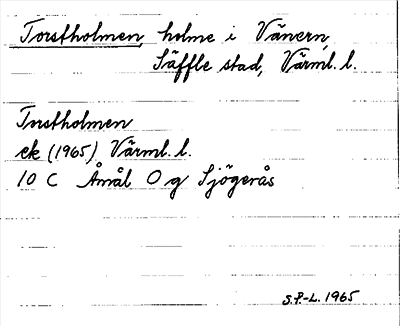 Torstholmen, holme i Vänern,
Säffle stad, Värml. l.
Torstholmen
ek (1965) Värml. l.
10 C Åmål O g Sjögerås
S.P-L. 1965